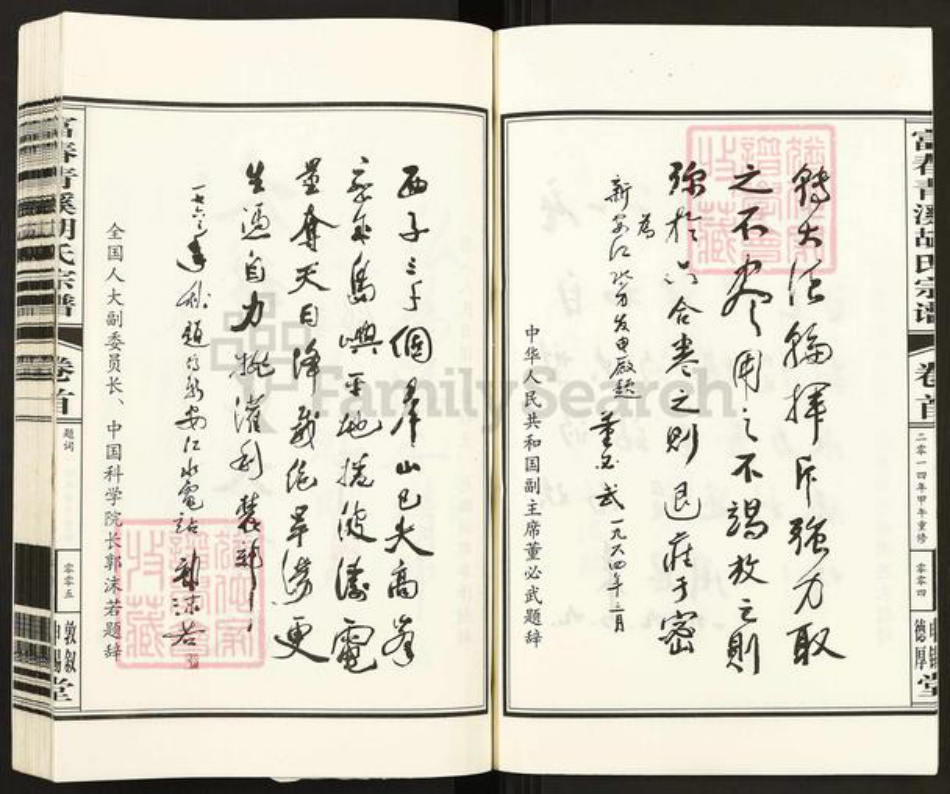 富春青溪胡氏宗谱
卷首
二零一四年甲午重修
零零四
德厚堂
转大法轮挥斥强力取
之不尽用之不竭放之则
弥於六合卷之则退在于密
为
新安江水力发电厂题 董必武 一九六四年三月
中华人民共和国副主席董必武题辞
西子三千個群山已失高峯
成島嶼平地捲波濤電
量奪天日降威絶旱澇更
生憑自力排灌利
一九六三年 題 新安江水電站 郭沫若
全国人大副委员长、中国科学院长郭沫若题辞
富春青溪胡氏宗谱
卷首
题词
零零五
敦叙堂
FamilySearch